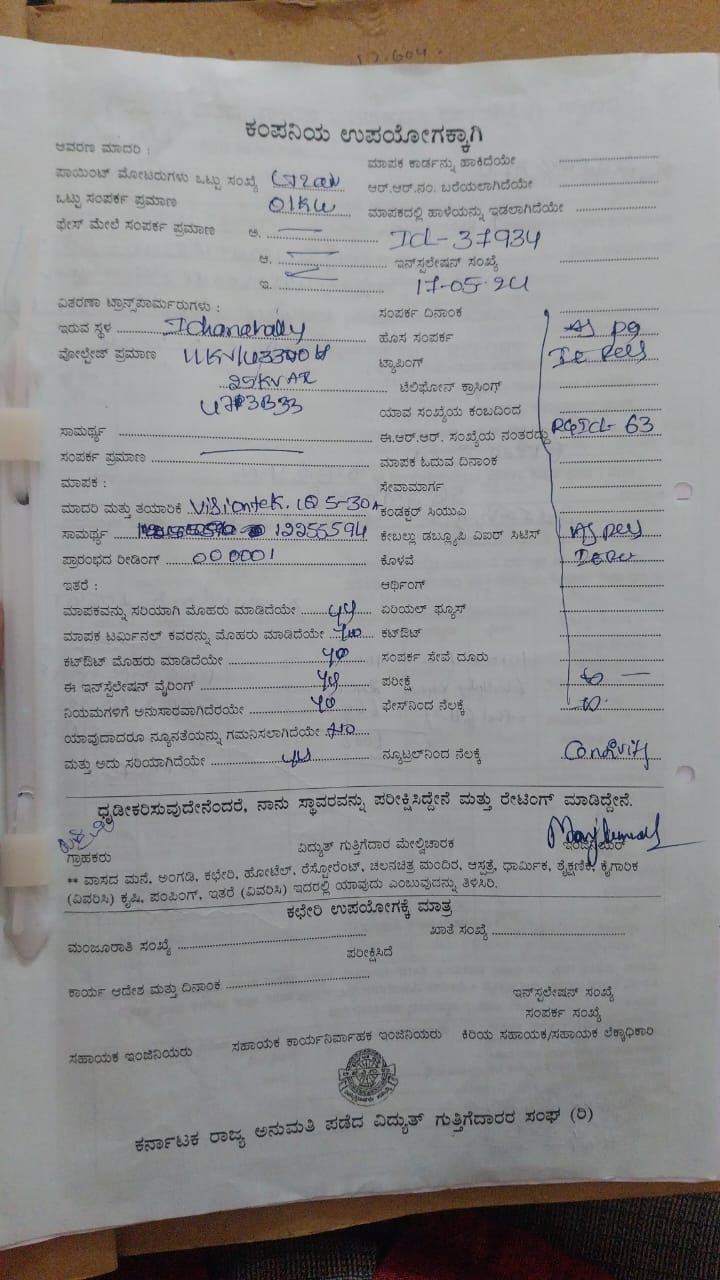 17.604.
ಕಂಪನಿಯ ಉಪಯೋಗಕ್ಕಾಗಿ
ಆವರಣ ಮಾದರಿ :
ಮಾಪಕ ಕಾರ್ಡನ್ನು ಹಾಕಿದೆಯೇ
ಪಾಯಿಂಟ್ ಮೋಟರುಗಳು ಒಟ್ಟು ಸಂಖ್ಯೆ
ಆರ್.ಆರ್.ನಂ. ಬರೆಯಲಾಗಿದೆಯೇ
ಒಟ್ಟು ಸಂಪರ್ಕ ಪ್ರಮಾಣ 01KW
ಮಾಪಕದಲ್ಲಿ ಹಾಳೆಯನ್ನು ಇಡಲಾಗಿದೆಯೇ
ಫೇಸ್ ಮೇಲೆ ಸಂಪರ್ಕ ಪ್ರಮಾಣ ಅ. ICL-37934
ಆ. ಇನ್‌ಸ್ಟಲೇಷನ್ ಸಂಖ್ಯೆ
ಇ. 17-05-24
ವಿತರಣಾ ಟ್ರಾನ್ಸ್‌ಪಾರ್ಮರುಗಳು :
ಸಂಪರ್ಕ ದಿನಾಂಕ
ಇರುವ ಸ್ಥಳ Ichanahally
ಹೊಸ ಸಂಪರ್ಕ As pg
ವೋಲ್ಟೇಜ್ ಪ್ರಮಾಣ 11KV/433
ಟ್ಯಾಪಿಂಗ್
25KVAR
ಟೆಲಿಫೋನ್ ಕ್ರಾಸಿಂಗ್
ಯಾವ ಸಂಖ್ಯೆಯ ಕಂಬದಿಂದ
ಸಾಮರ್ಥ್ಯ
ಈ.ಆರ್.ಆರ್. ಸಂಖ್ಯೆಯ ನಂತರದ್ದು 63
ಸಂಪರ್ಕ ಪ್ರಮಾಣ
ಮಾಪಕ ಓದುವ ದಿನಾಂಕ
ಮಾಪಕ :
ಸೇವಾಮಾರ್ಗ
ಮಾದರಿ ಮತ್ತು ತಯಾರಿಕೆ Visiontek. 1Ø 5-30A
ಕಂಡಕ್ಟರ್ ಸಿಯುಎ
ಸಾಮರ್ಥ್ಯ 12255594
ಕೇಬಲ್ಲು ಡಬ್ಲ್ಯೂಪಿ ಎಐರ್ ಸಿಟಿಸ್ As per
ಪ್ರಾರಂಭದ ರೀಡಿಂಗ್ 000001
ಕೊಳವೆ
ಇತರೆ :
ಆರ್ಥಿಂಗ್
ಮಾಪಕವನ್ನು ಸರಿಯಾಗಿ ಮೊಹರು ಮಾಡಿದೆಯೇ
ಏರಿಯಲ್ ಫ್ಯೂಸ್
ಮಾಪಕ ಟರ್ಮಿನಲ್ ಕವರನ್ನು ಮೊಹರು ಮಾಡಿದೆಯೇ
ಕಟ್‌ಔಟ್
ಕಟ್‌ಔಟ್ ಮೊಹರು ಮಾಡಿದೆಯೇ
ಸಂಪರ್ಕ ಸೇವೆ ದೂರು
ಈ ಇನ್‌ಸ್ಟಲೇಷನ್ ವೈರಿಂಗ್
ಪರೀಕ್ಷೆ
ನಿಯಮಗಳಿಗೆ ಅನುಸಾರವಾಗಿದೆರಯೇ
ಫೇಸ್‌ನಿಂದ ನೆಲಕ್ಕೆ
ಯಾವುದಾದರೂ ನ್ಯೂನತೆಯನ್ನು ಗಮನಿಸಲಾಗಿದೆಯೇ No
ಮತ್ತು ಅದು ಸರಿಯಾಗಿದೆಯೇ
ನ್ಯೂಟ್ರಲ್‌ನಿಂದ ನೆಲಕ್ಕೆ
ಧೃಡೀಕರಿಸುವುದೇನೆಂದರೆ, ನಾನು ಸ್ಥಾವರವನ್ನು ಪರೀಕ್ಷಿಸಿದ್ದೇನೆ ಮತ್ತು ರೇಟಿಂಗ್ ಮಾಡಿದ್ದೇನೆ.
ಗ್ರಾಹಕರು ವಿದ್ಯುತ್ ಗುತ್ತಿಗೆದಾರ ಮೇಲ್ವಿಚಾರಕ ಇಂಜಿನಿಯರ್
** ವಾಸದ ಮನೆ, ಅಂಗಡಿ, ಕಛೇರಿ, ಹೋಟೆಲ್, ರೆಸ್ಟೋರೆಂಟ್, ಚಲನಚಿತ್ರ ಮಂದಿರ, ಆಸ್ಪತ್ರೆ, ಧಾರ್ಮಿಕ, ಶೈಕ್ಷಣಿಕ, ಕೈಗಾರಿಕ
(ವಿವರಿಸಿ) ಕೃಷಿ, ಪಂಪಿಂಗ್, ಇತರೆ (ವಿವರಿಸಿ) ಇದರಲ್ಲಿ ಯಾವುದು ಎಂಬುವುದನ್ನು ತಿಳಿಸಿರಿ.
ಕಛೇರಿ ಉಪಯೋಗಕ್ಕೆ ಮಾತ್ರ
ಮಂಜೂರಾತಿ ಸಂಖ್ಯೆ ಖಾತೆ ಸಂಖ್ಯೆ
ಪರೀಕ್ಷಿಸಿದೆ
ಕಾರ್ಯ ಆದೇಶ ಮತ್ತು ದಿನಾಂಕ
ಇನ್‌ಸ್ಟಲೇಷನ್ ಸಂಖ್ಯೆ
ಸಂಪರ್ಕ ಸಂಖ್ಯೆ
ಸಹಾಯಕ ಇಂಜಿನಿಯರು ಸಹಾಯಕ ಕಾರ್ಯನಿರ್ವಾಹಕ ಇಂಜಿನಿಯರು ಕಿರಿಯ ಸಹಾಯಕ/ಸಹಾಯಕ ಲೆಕ್ಕಾಧಿಕಾರಿ
ಕರ್ನಾಟಕ ರಾಜ್ಯ ಅನುಮತಿ ಪಡೆದ ವಿದ್ಯುತ್ ಗುತ್ತಿಗೆದಾರರ ಸಂಘ (ರಿ)